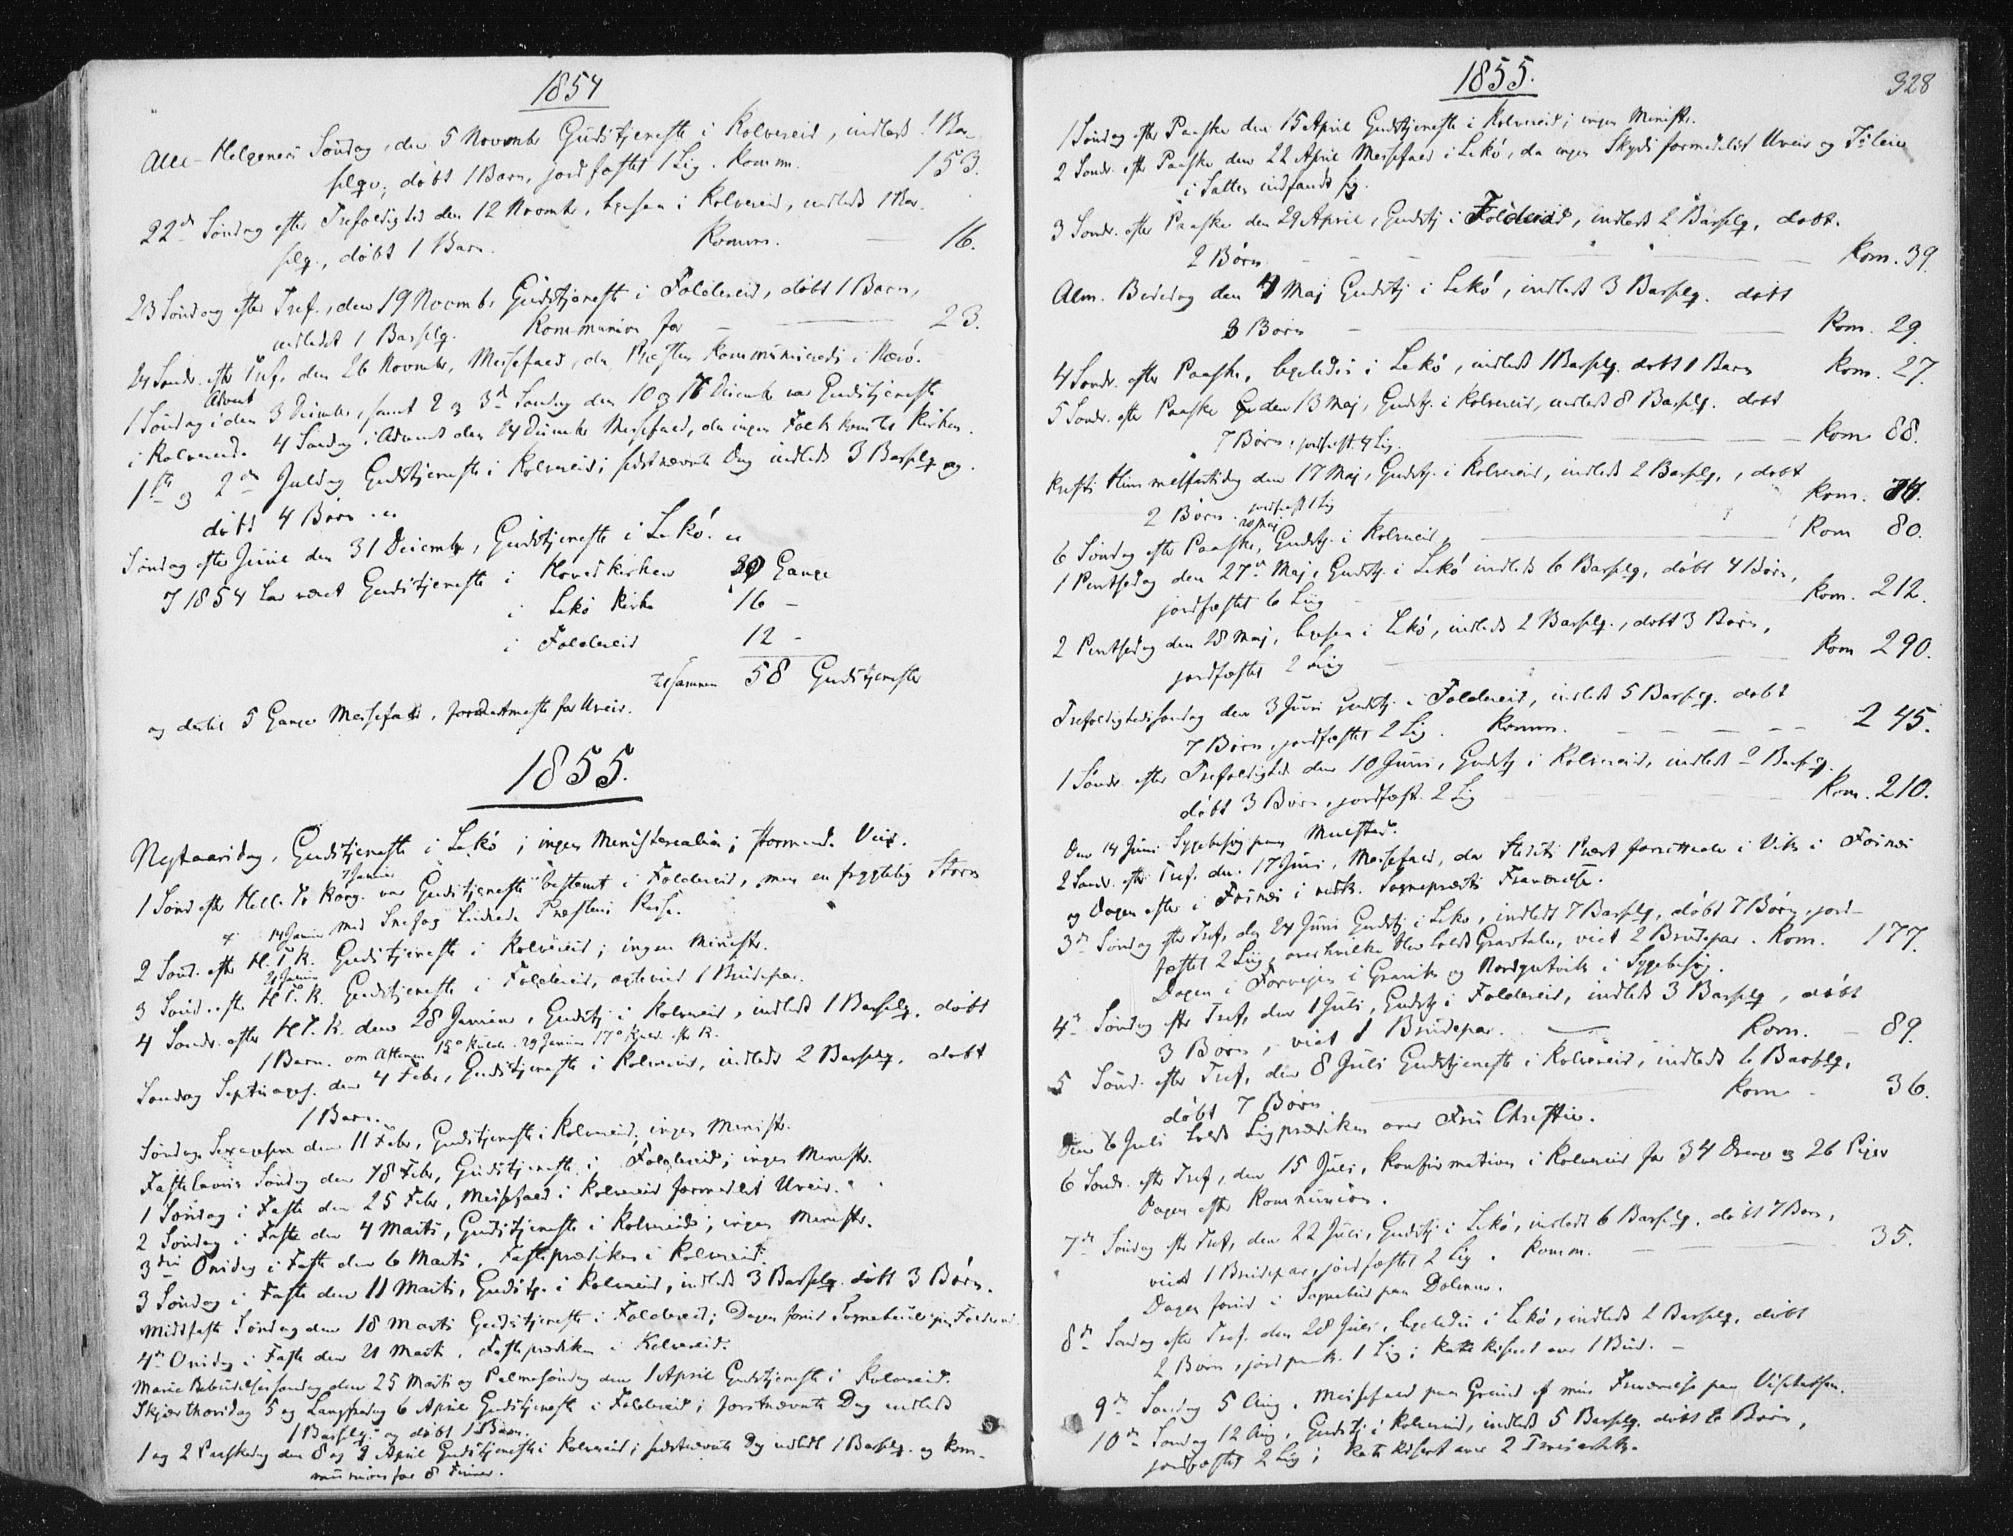 1854
Alle-Helgenes Søndag, den 5 Novembr Gudstjeneste i Kolvereid, indledt 1 Bar-
selqv., døbt 1 Barn, jordfæstet 1 Lig. Komm. 153.
22de Søndag efter Trefoldighed den 12 Novembr, i Kolvereid, indledt 1 Bar-
selq., døbt 1 Barn. Komm. 16.
23 Søndag efter Tref., den 19 Novembr Gudstjeneste i Foldereid, døbt 1 Barn,
indledet 1 Barselq. Kommunion for 23.
24 Sønd. efter Tref. den 26 Novembr, Messefald, da Præsten kommunicerede i Nærö.
1 Søndag i Advent den 3 Decembr, samt 2 og 3de Søndag den 10 og 17 Decembr var Gudstjeneste
i Kolvereid. 4 Søndag i Advent den 24 Decembr Messefald, da ingen Folk kom til Kirken.
1ste og 2den Juledag Gudstjeneste i Kolvereid; sidstnævnte Dag indledt 3 Barselq. og
døbt 4 Børn.
Søndag efter Juul den 31 Decembr, Gudstjeneste i Lekö.
I 1854 har været Gudstjeneste i Hovedkirken 30 Gange
i Lekö Kirke 16 -
i Foldereid 12 -
tilsammen 58 Gudstjenester
og dertil 5 Gange Messefald, formedelst Uveir.
1855.
Nytaarsdag, Gudstjeneste i Lekö; ingen Ministerialia; stormende Veir.
1 Sønd efter Hell. Tr. Kong. 7 Januar var Gudstjeneste bestemt i Foldereid, men en frygtelig Storm
med Snefog hindrede Præstens Reise.
2 Sønd. efter H.T.K. 14 Januar Gudstjeneste i Kolvereid; ingen Ministr.
3 Sønd. efter H.T.K. 21 Januar Gudstjeneste i Foldereid, ægteviet 1 Brudepar.
4 Sønd. efter H.T.K. den 28 Januar, Gudstj. i Kolvereid, indledt 1 Barselq. døbt
1 Barn. om Aftenen 15° Kulde. 29 Januar 17° Kulde efter R.
Søndag Septuages. den 4 Febr, Gudstjeneste i Kolvereid, indledt 2 Barselq. døbt
1 Barn.
Søndag Sexagesima den 11 Febr, Gudstjeneste i Kolvereid; ingen Ministr.
Fastelavns Søndag den 18 Febr, Gudstjeneste i Foldereid; ingen Ministr.
1 Søndag i Faste den 25 Febr, Messefald i Kolvereid formedelst Uveir.
2 Søndag i Faste den 4 Marts, Gudstjeneste i Kolvereid; ingen Ministr.
3die Onsdag i Faste den 6 Marts, Fasteprædiken i Kolvereid.
3 Søndag i Faste den 11 Marts, Gudstj. i Kolvereid, indledt 3 Barselq. døbt 3 Børn.
Midfaste Søndag den 18 Marts Gudstjeneste i Foldereid; Dagen forud Sognebud paa Foldereid.
4de Onsdag i Faste den 21 Marts, Fasteprædiken i Kolvereid.
Mariæ Bebudelsessøndag den 25 Marts og Palmesøndag den 1 April Gudstjeneste i Kolvereid.
Skjærthorsdag 5 og Langfredag 6 April Gudstjeneste i Foldereid; førstnævnte Dag indledt
1 Barselq. og døbt 1 Barn.
1 og 2 Paaskedag den 8 og 9 April Gudstjeneste i Kolvereid; sidstnævnte Dag indledt 1 Barselq. og kom-
munion for 8 Finner.
1855.
328
1 Søndag efter Paaske den 15 April Gudstjeneste i Kolvereid; ingen Ministr.
2 Sønd. efter Paaske den 22 April Messefald i Lekö, da ingen Skyds formedelst Uveir og
i Salten indfandt sig.
3 Sønd. efter Paaske den 29 April, Gudstj. i Foldereid, indledt 2 Barselq. døbt
2 Børn Kom. 39.
Alm. Bededag den 4 Maj Gudstj i Lekö, indledt 3 Barselq. døbt
3 Børn Kom. 29.
4 Sønd. efter Paaske, i Lekö, indledt 1 Barselq. døbt 1 Barn Kom. 27.
5 Sønd. efter Paaske den 13 Maj, Gudstj. i Kolvereid, indledt 8 Barselq. døbt
7 Børn, jordfæst. 4 Lig. Kom 88.
Kristi Himmelfartsdag den 17 Maj, Gudstj. i Kolvereid, indledt 2 Barselq., døbt
2 Børn. jordfæst 1 Lig Kom. 74.
6 Søndag efter Paaske, 20 Maj Gudstj. i Kolvereid Kom 80.
1 Pintsedag den 27de Maj, Gudstj. i Lekö indledt 6 Barselq, døbt 4 Børn,
jordfæstet 6 Lig Kom. 212.
2 Pintsedag den 28 Maj, i Lekö, indledt 2 Barselq., døbt 3 Børn,
jordfæstet 2 Lig Kom 290.
Trefoldighedssøndag den 3 Juni Gudstj. i Foldereid, indledt 5 Barselq. døbt
7 Børn, jordfæstet 2 Lig. Komm. 245.
1 Sønd. efter Trefoldighed den 10 Juni, Gudstj i Kolvereid, indledt 2 Barselq.
døbt 3 Børn, jordfæst. 2 Lig Kom. 210.
Den 14 Juni Sygebesøg paa
2 Sønd. efter Tref. den 17 Juni, Messefald, da Stedets Præst forrettede i Vik i Fosnæs
og Dagen efter i Fosnæs i vedk. Sognepræsts Fraværelse.
3de Søndag efter Tref, den 24 Juni Gudstj i Lekö, indledt 7 Barselq, døbt 7 Børn, jord-
fæstet 2 Lig, over hvilke blev holdt Gravtaler, viet 2 Brudepar. Kom. 177.
Dagen i Forvejen i Gravik og i Sygebesøg.
4de Søndag efter Tref, den 1 Juli, Gudstj i Foldereid, indledt 3 Barselq, døbt
3 Børn, viet 1 Brudepar. Kom. 89.
5 Sønd. efter Tref, den 8 Juli Gudstjeneste i Kolvereid, indledt 6 Barselq,
døbt 7 Børn Kom 36.
Den 6 Juli holdt Ligprædiken over Fru Christie.
6 Sønd. efter Tref, den 15 Juli, Konfirmation i Kolvereid for 34 Drenge og 26 Piger
Dagen efter Kommunion.
7de Søndag efter Tref, den 22 Juli, Gudstj i Lekö, indledt 6 Barselq. døbt 7 Børn,
viet 1 Brudepar, jordfæstet 2 Lig. Komm. 35.
Dagen forud i Sognebud paa
8de Søndag efter Tref. den 28 Juli, i Lekö, indledt 2 Barselq, døbt
2 Børn, jordpaak. 1 Lig;
9de Søndag 5 Aug. Messefald paa Grund af min Fraværelse paa Visitatsen.
10de Søndag 12 Aug, Gudstj i Kolvereid, indledt 5 Barselq. døbt 6 Børn,
jordfæstet 2 Lig;